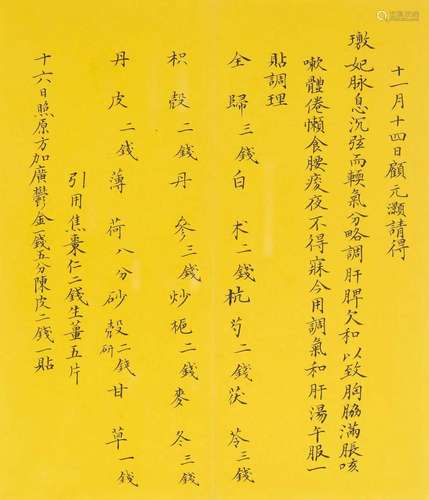 十一月十四日顧元灝請得
妃脉息沉弦而輭氣分略調肝脾欠和以致胸脇滿脹咳
嗽體倦懶食腰痠夜不得寐今用調氣和肝湯午服一
貼調理
全歸三錢白朮二錢杭芍二錢茯苓三錢
枳殼二錢丹參三錢炒梔二錢麥冬三錢
丹皮二錢薄荷八分砂殼研二錢甘草一錢
引用焦棗仁二錢生薑五片
十六日照原方加廣鬱金一錢五分陳皮二錢一貼